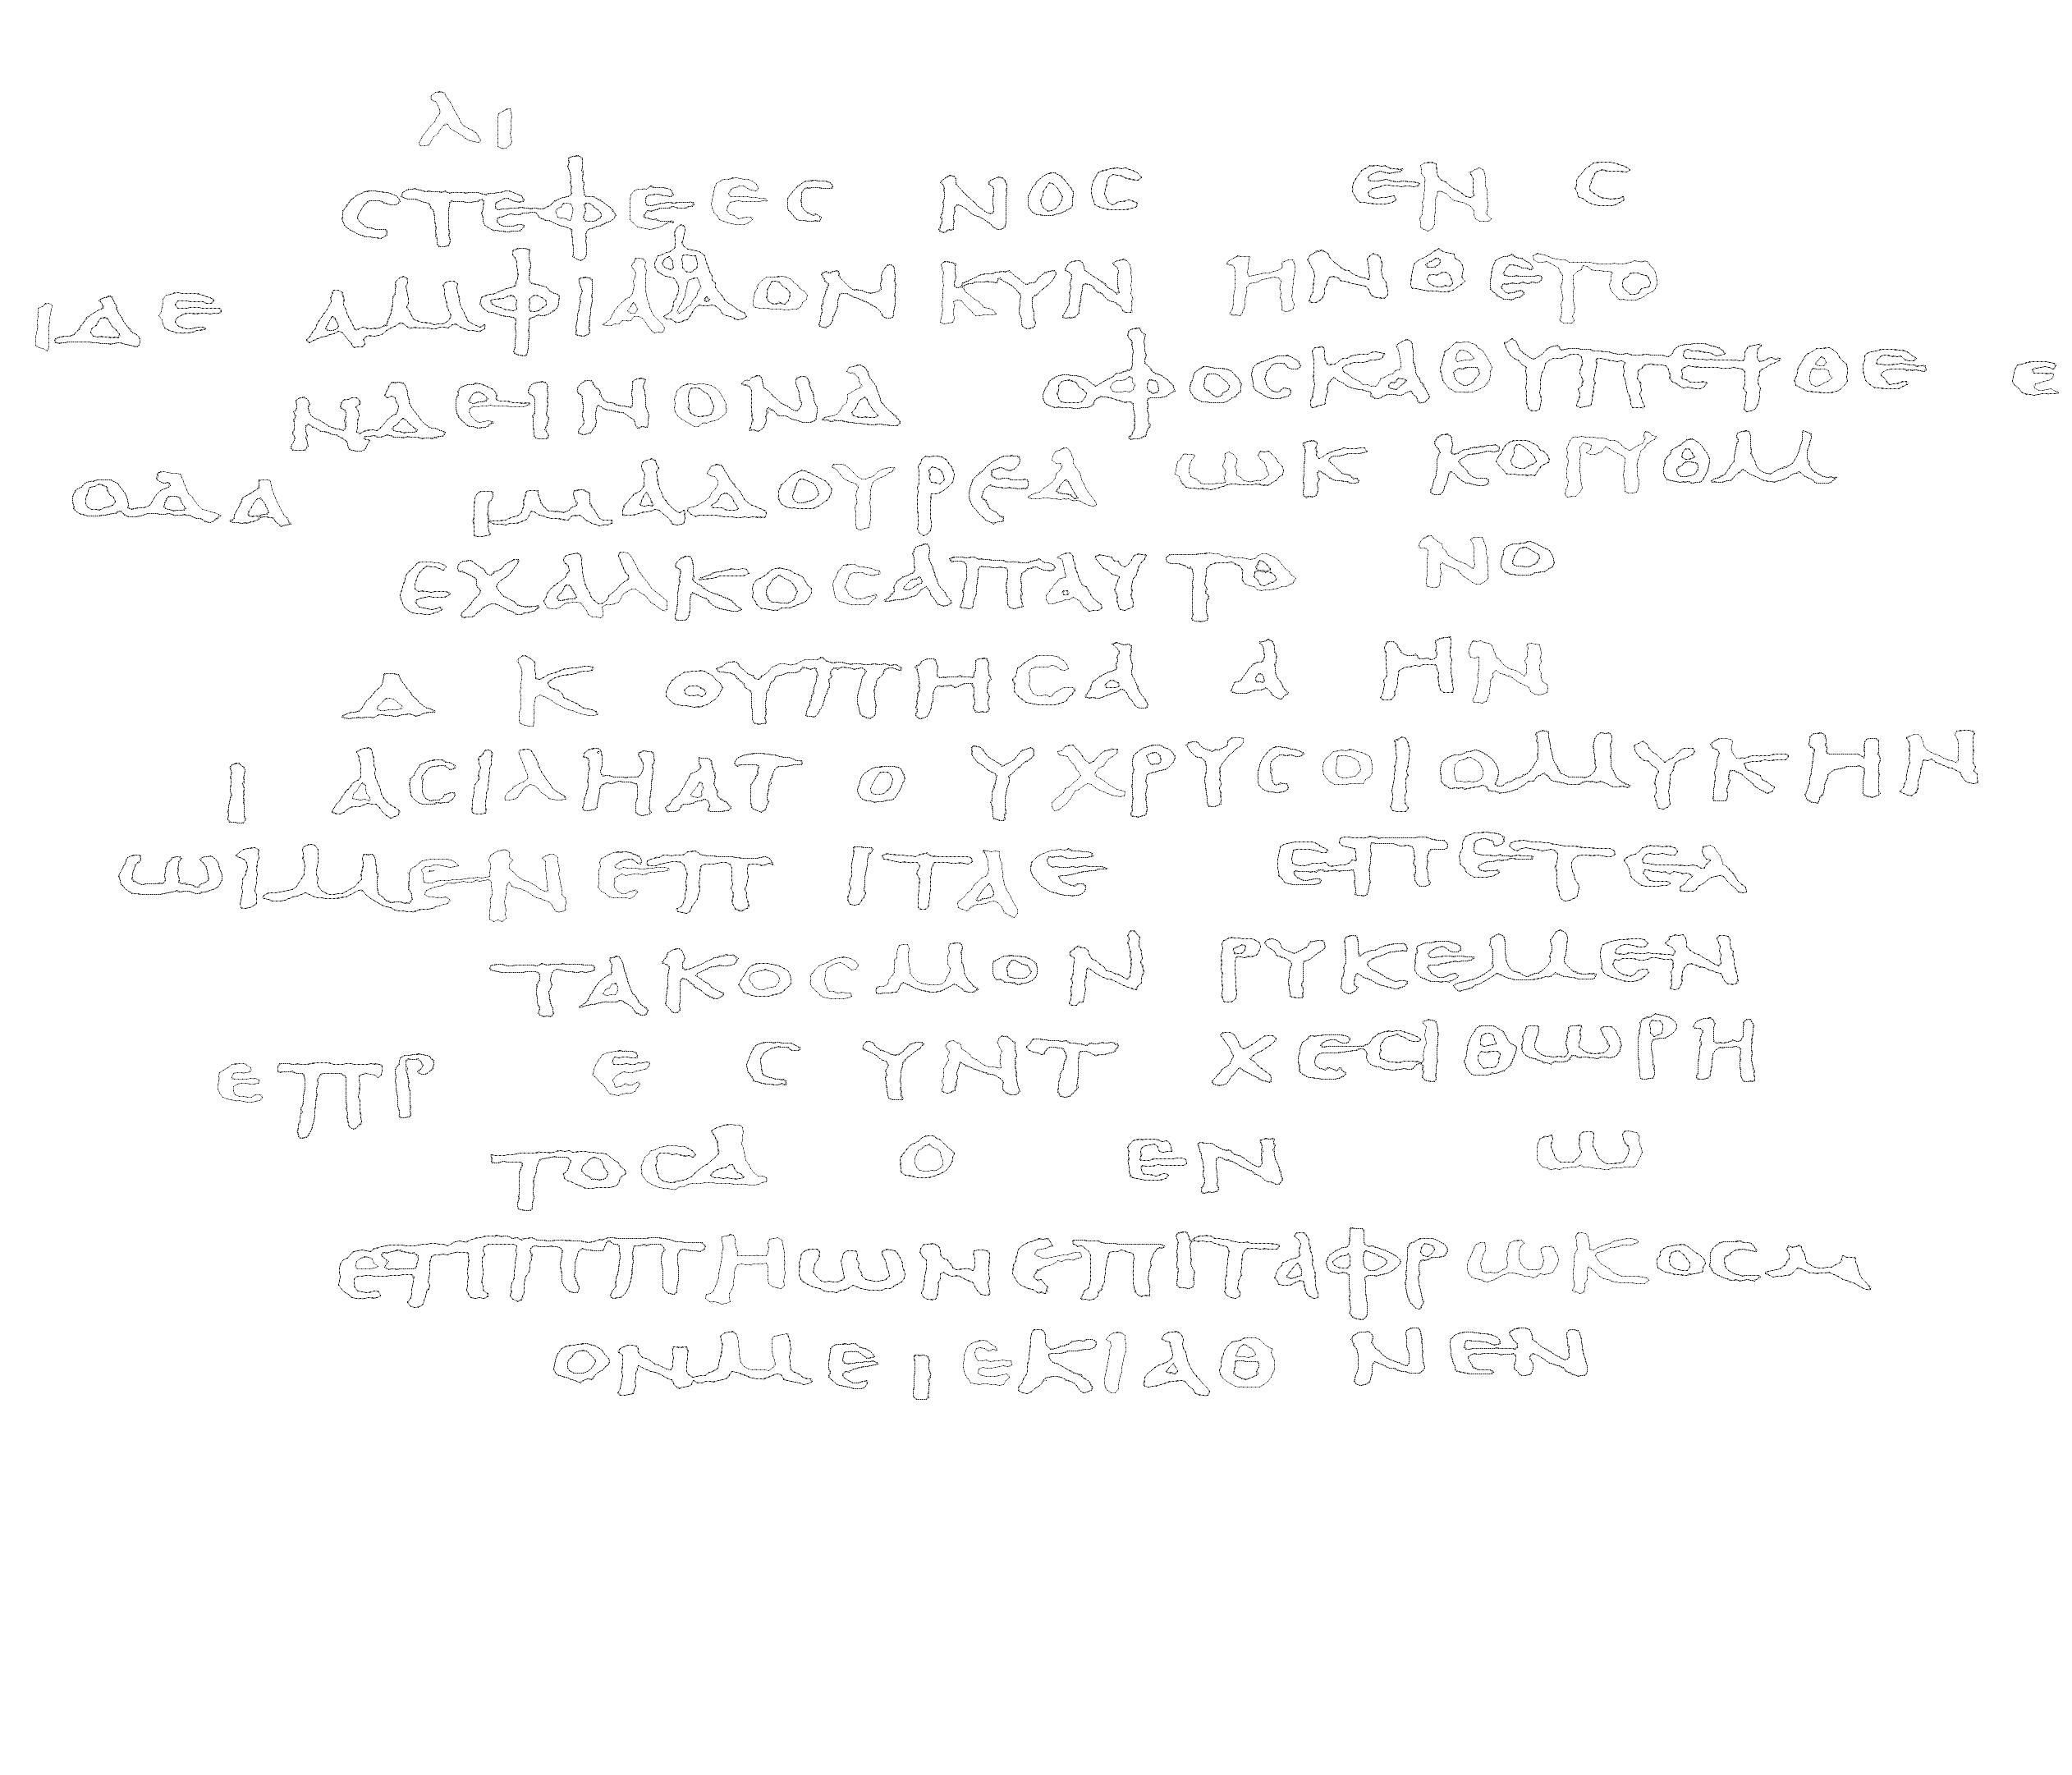 λι
ϲτεφεεϲ νοϲ εν ϲ
ιδε αμφιαφαον κυν ηνθετο
ναεινονδ οφοϲκαθυπεψθε ε
οδα ιμαδουρεα ωκ κοπυθμ
εχαλκοϲαπαυτθ νο
δ κ ουπηϲα α ην
ι αϲιληατ ο υχρυϲοιομυκην
ωιμενεπ ιταε επετελ
τακοϲμον ρυκεμεν
επρ ε ϲ υντ χεϲιθωρη
τοϲδ ο εν ω
επππηωνεπιταφρωκοϲμ
ονμειεκιαθ νεν